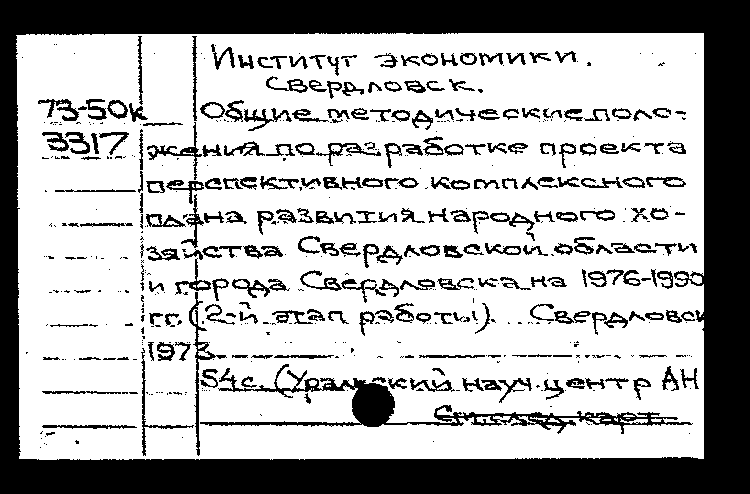 Институт экономики.
Свердловск.
73-50к Общие методические поло-
3317 жения по разработке проекта
перспективного комплексного
плана развития народного хо-
зяйства Свердловской области
и города Свердловска на 1976-1990
гг. (2-й этап работы). Свердловск
1973.
54с. (Уральский науч. центр АН
См. след. карт.